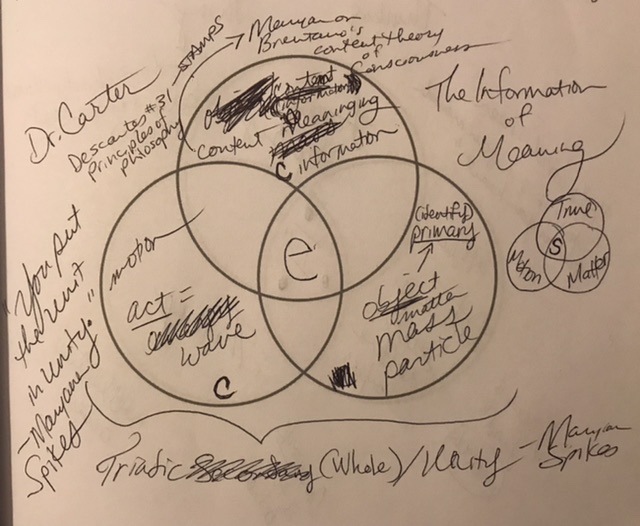 Dr. Carter
STAMPS
Descartes #31
Principles of
Philosophy
Maryam on
Brentano's
content theory
of
consciousness
The Information
of
Meaning
content
information
content Meaninging
C information
motion
act =
wave
C
e
(identity)
primary
object
matter
mass
particle
Time
Motion
S
Matter
"You put
the unit
in unity."
-Maryam
Spikes
Triadic (Whole)/Unity - Maryam
Spikes